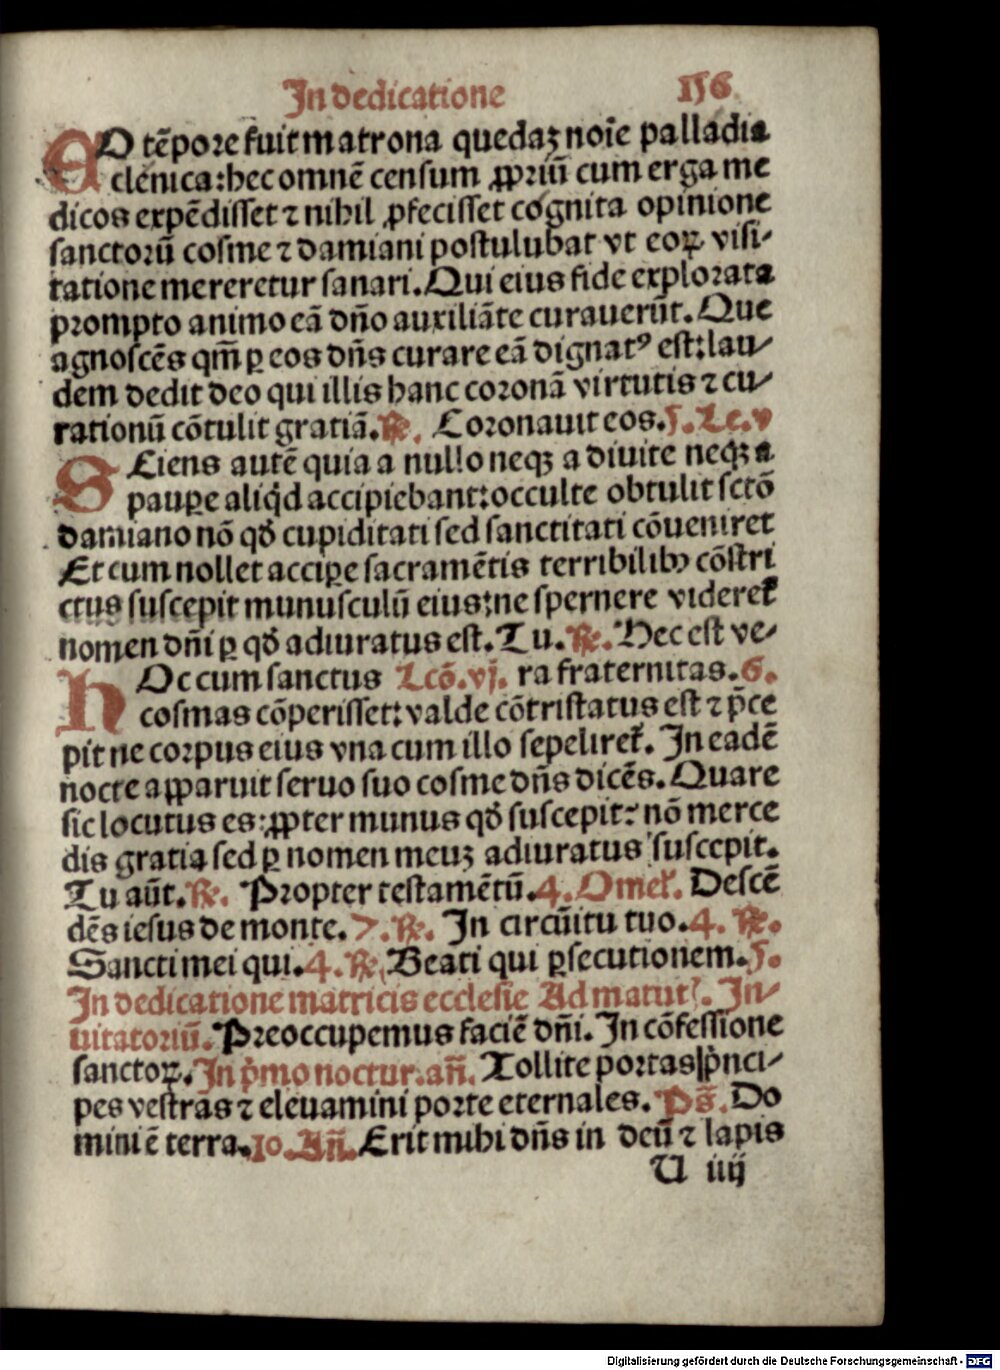 In dedicatione 156
EO tēpore fuit matrona quedaȝ noīe palladia
clenica: hec omnē censum ꝓpriū cum erga me
dicos expēdisset ⁊ nihil ꝓfecisset cognita opinione
sanctorū cosme ⁊ damiani postulubat vt eoꝝ visi-
tatione mereretur sanari. Qui eius fide explorata
prompto animo eā dño auxiliāte curauerūt. Que
agnoscēs qm̄ ꝑ eos dñs curare eā dignatꝰ est: lau-
dem dedit deo qui illis hanc coronā virtutis ⁊ cu-
rationū cōtulit gratiā. ℟. Coronauit eos. 5. Le. v
SCiens autē quia a nullo neqꝫ a diuite neqꝫ a
pauꝑe aliqͥd accipiebant: occulte obtulit sctō
damiano nō qď cupiditati sed sanctitati cōueniret
Et cum nollet acciꝑe sacramētis terribilibꝰ cōstri
ctus suscepit munusculū eius: ne spernere videret᷑
nomen dñi ꝑ qď adiuratus est. Tu. ℟. Hec est ve-
HOc cum sanctus Lcō. vj. ra fraternitas. 6.
cosmas cōperisset: valde cōtristatus est ⁊ p̄ce
pit ne corpus eius vna cum illo sepeliret᷑. In eadē
nocte apparuit seruo suo cosme dñs dicēs. Quare
sic locutus es: ꝓpter munus qď suscepit: nō merce
dis gratia sed ꝑ nomen meuȝ adiuratus suscepit.
Tu aūt. ℟. Propter testamētū. 4. Omel᷑. Descē
dēs iesus de monte. 7. ℟. In circūitu tuo. 4. ℟.
Sancti mei qui. 4. ℟. Beati qui ꝑsecutionem. 5.
In dedicatione matricis ecclesie Ad matut᷑. In-
uitatoriū. Preoccupemus faciē dñi. In cōfessione
sanctoꝝ. In pͥmo noctur. añ. Tollite portas pͥnci-
pes vestras ⁊ eleuamini porte eternales. Ps̄. Do
mini ē terra. 10. Añ. Erit mihi dñs in deū ⁊ lapis
U iiij
Digitalisierung gefördert durch die Deutsche Forschungsgemeinschaft - DFG